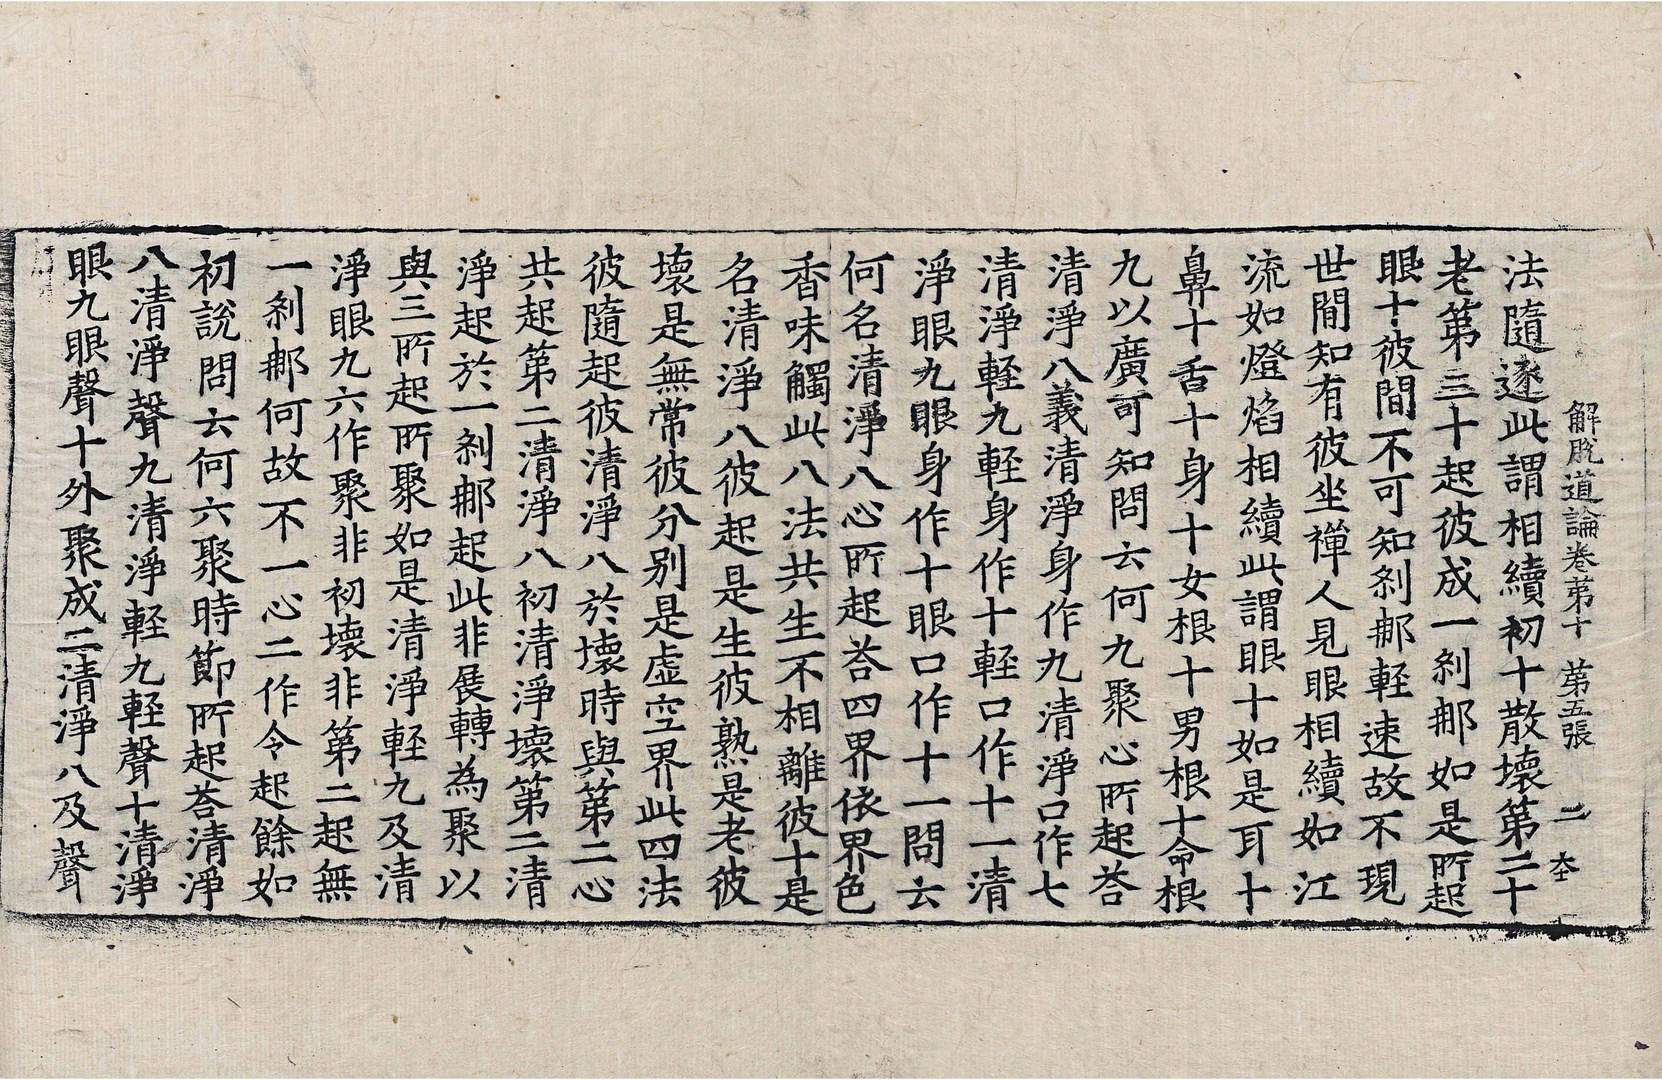 解脫道論卷第十　第五張　二
法隨逐此謂相續初十散壞第二十
老第三十起彼成一剎那如是所起
眼十彼間不可知剎那輕速故不現
世間知有彼坐禪人見眼相續如江
流如燈焰相續此謂眼十如是耳十
鼻十舌十身十女根十男根十命根
九以廣可知問云何九聚心所起荅
清淨八義清淨身作九清淨口作七
清淨輕九輕身作十輕口作十一清
淨眼九眼身作十眼口作十一問云
何名清淨八心所起荅四界依界色
香味觸此八法共生不相離彼十是
名清淨八彼起是生彼熟是老彼
壞是無常彼分別是虛空界此四法
彼隨起彼清淨八於壞時與第二心
共起第二清淨八初清淨壞第三清
淨起於一剎那起此非展轉為聚以
與三所起所聚如是清淨輕九及清
淨眼九六作聚非初壞非第二起無
一剎那何故不一心二作令起餘如
初說問云何六聚時節所起荅清淨
八清淨聲九清淨輕九輕聲十清淨
眼九眼聲十外聚成二清淨八及聲